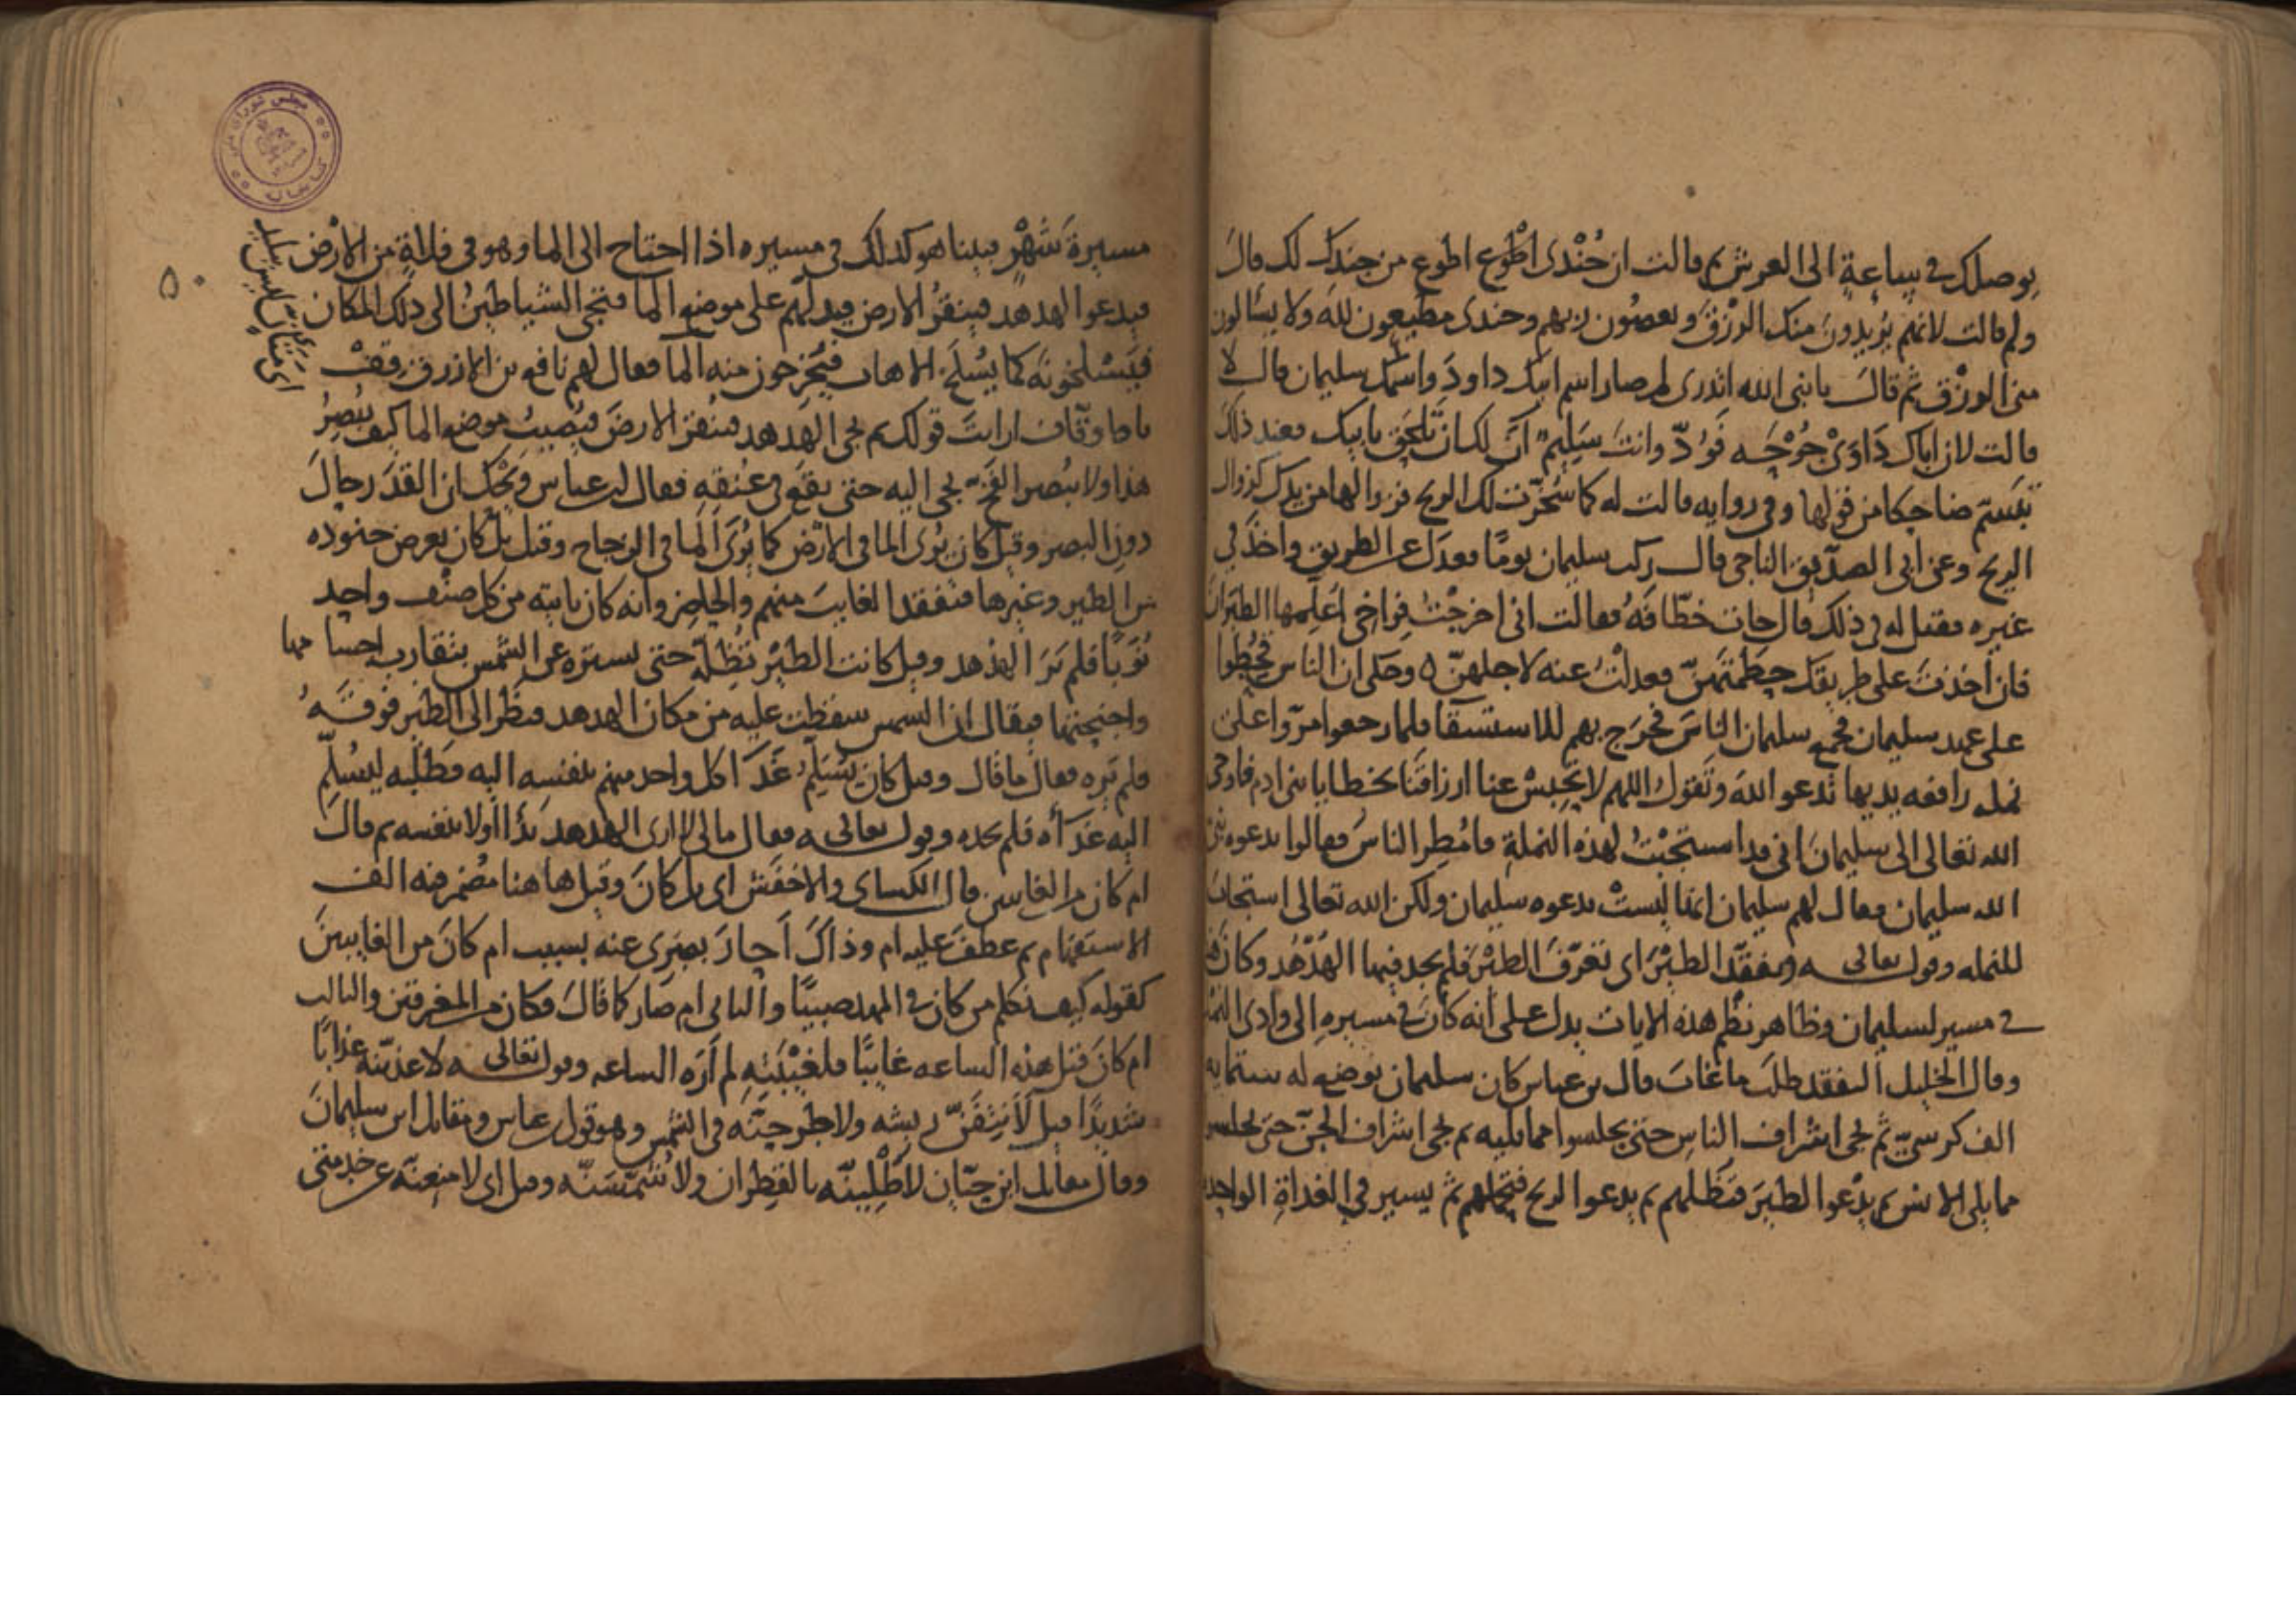 يوصلك في ساعة الى العرش ثم قالت ان جُنْدى اطْوع اطوع من جندك لك قال
ولم قالت لانهم يُريدون منك الرزقَ ويعصُون ربهم وجندى مطيعون لله ولا يسالون
منى الرزق ثم قال يا نبى الله اتدرى لم صار اسم ابيك داود واسمك سليمان قال لا
قالت لان اباك دَاوَىْ جُرْحَه فوُدّ وانت سَلِيم آنَ لك ان تَلحَق بابيك فعند ذلك
تبسّم ضاحكا من قولها وفى روايه قالت له كما سُخّرت لك الريح فزوالها من يدك كزوال
الريح وعن ابى الصدّيق الناجى قال ركب سليمان يومًا فعدل عن الطريق واخذ فى
غيره فقيل له فى ذلك قال جات خطّافَهٌ فقالت انى اخرجْتُ فِراخى اُعَلِمها الطيران
فان اخذتَ على طريقك حطمتَهنّ فعدلتُ عنه لاجلهنّ ٥ وحكى ان الناس قُحِطُوا
على عهد سليمان فجمع سليمان الناسَ فخرَج بهم للاستسقا فلما رجعوا مرّوا على
نمله رافعه يديها تدعوا اللهَ وتَقول اللهم لا تحبسْ عنا ارزاقَنا بخطايا بنى ادم فاوحى
الله تعالى الى سليمان انى قد استجبْتُ لهذه النملةِ فاُمْطِر الناسُ فقالوا بدعوه نبى
الله سليمان فقال لهم سليمان انها ليستْ بدعوه سليمان ولكن الله تعالى استجاب
للنمله وقوله تعالى وتفقّد الطيْرَ اى تعرّفَ الطيْرَ فلم يجد فيها الهُدْهُد وكان
فى مسير لسليمان وظاهر نظْم هذه الايات يدل على انه كان فى مسيرهِ الى وادى النمل
وقال الخليل التفقد طلَب ما غابَ قال بن عباس كان سليمان يوضع له ستمايه
الف كرسيّ ثم يجى اشراف الناس حتى يجلسوا مما يليه ثم يجى اشراف الجنّ حتى يجلسوا
مما يلى الانس ثم يدْعوا الطيرَ فتظلهم ثم يدعوا الريح فتحملهم ثم يسير فى الغداةِ الواحدة
مسيرةَ شهْرٍ فبينا هو كذلك فى مسيره اذا احتاج الى الما وهو فى فلاةٍ من الارْض
فيدعوا الهدهد فينقرُ الارض فيدلّهم على موضع الما فتجى الشياطينُ الى ذلك المكان
فيَسْلخونَه كما يُسْلَخ الاهاب فيُخرجون منه الما فقال لهم نافع بن الازرق قفْ
يا وقّاف ارايتَ قولك ثم يجى الهدهد فينقرُ الارضَ فيُصيبُ موضع الما كيف يُبْصِرُ
هذا ولا يبُصر الفخّ يجى اليه حتى يقَع فى عُنقِهِ فقال ابن عباس ويْحك ان القدَر حال
دون البصر وقيل كان يُرى الما فى الارْض كما يُرَى الما فى الزجاج وقيل بل كان يعرض جنوده
من الطير وغيرها فتفقد الغايبَ منهم والحاضر وانه كان ياتيه من كل صنْف واحد
نُوَبًا فلم يَرَ الهدهد وقيل كانت الطيْرُ تُظِلّه حتى تستره عن الشمس بتقارب احسامها
واجنحتها فيقال ان الشمس سقطت عليه من مكان الهدهد فنظر الى الطير فوقَهُ
فلم يَره فقال ما قال وقيل كان يُسَلِّم غَدَا كل واحد منهم بنفسه اليه وطلبه ليُسلّم
اليه غَدَاه فلم يجده وقوله تعالى فقال مالى لا ارى الهدهد بدَا اولا بنفسه ثم قال
ام كان من الغايبين قال الكساى والاخفش اى بل كانَ وقيل ها هنا مضْمر فيه الف
الاستفهام ثم عطف عليه ام وذاك
كقوله كيف نكلم من كان فى المهد صبيًا والثانى ام صار كما قال فكان من المغرقين والثالث
ام كانَ قبل هذه الساعه غايبًا فلغيْبَتِه لم اَرَه الساعه وقوله تعالى لاعذبّنه عذابًا
شديدًا قيل لاَنتفَنّ ريشه ولاطرحنّه فى الشمس وهو قول بن عباس ومقاتل بن سليمان
وقال مقاتل ابن حيّان لاَطْلِينّه بالقطِران ولاُشَمّسَنّه وقيل اى لامنعنّه عن خدمتى
٥٠
مجلس شوراى ملى
كتابخانه